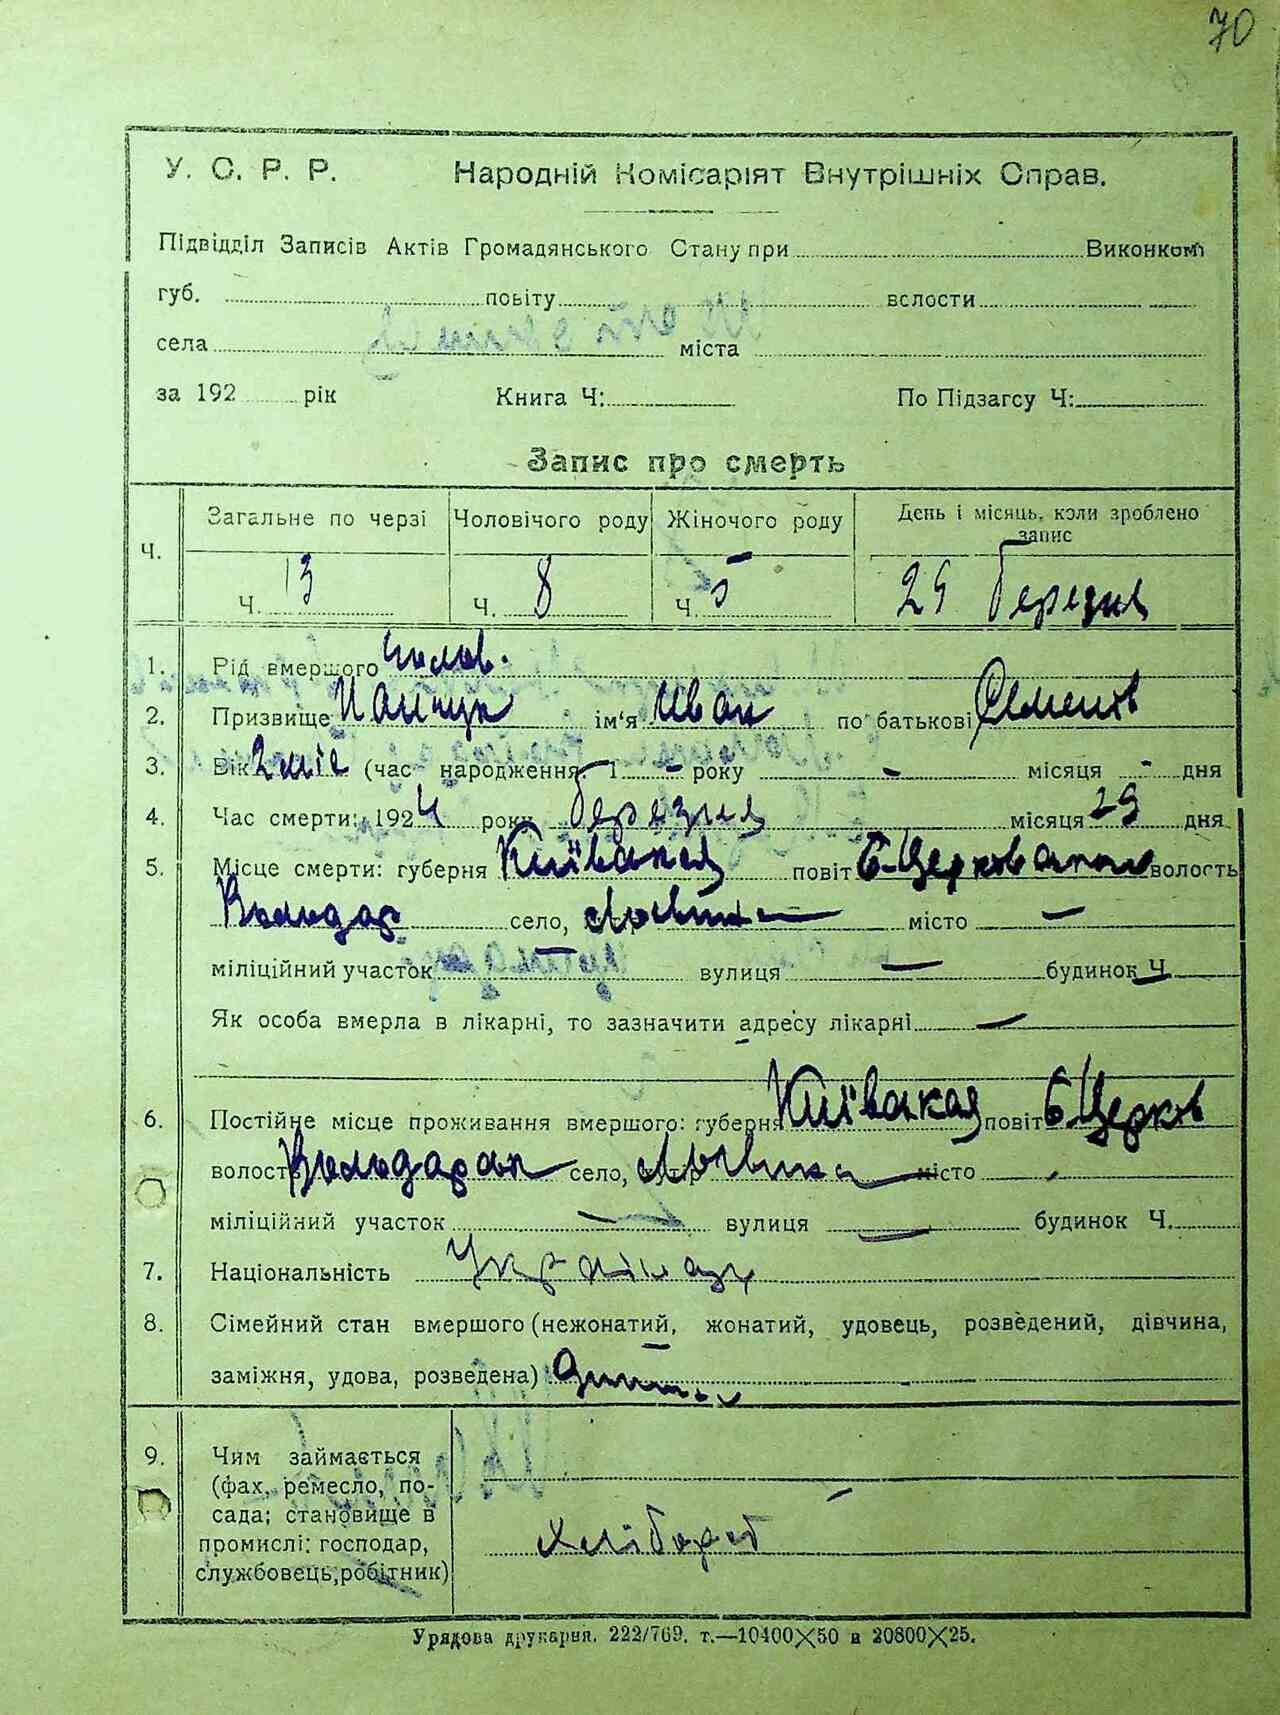 70
У. С. Р. Р. Народній Комісаріят Внутрішніх Справ.
Підвідділ Записів Актів Громадянського Стану при Виконком
губ. повіту волости
села міста
за 192 рік Книга Ч: По Підзагсу Ч:
Запис про смерть
Ч. Загальне по черзі Чоловічого роду Жіночого роду День і місяць, коли зроблено запис
Ч. 13 Ч. 8 Ч. 5 29 березня
1. Рід вмершого Чолов.
2. Призвище ім'я Иван по батькові Семенов
3. Вік 2 міс (час народження: 1 - року - місяця - дня
4. Час смерти: 1924 року березня місяця 29 дня
5. Місце смерти: губерня Київская повіт Б-Церковском волость
Володар село, місто —
міліційний участок — вулиця — будинок Ч. —
Як особа вмерла в лікарні, то зазначити адресу лікарні —
6. Постійне місце проживання вмершого: губерня Київская повіт Б Церков
волость село, місто
міліційний участок — вулиця — будинок Ч.
7. Національність
8. Сімейний стан вмершого (нежонатий, жонатий, удовець, розведений, дівчина,
заміжня, удова, розведена)
9. Чим займається
(фах, ремесло, по-
сада; становище в
промислі: господар,
службовець, робітник) хлібороб
Урядова друкарня. 222/769. т.—10400X50 и 20800X25.